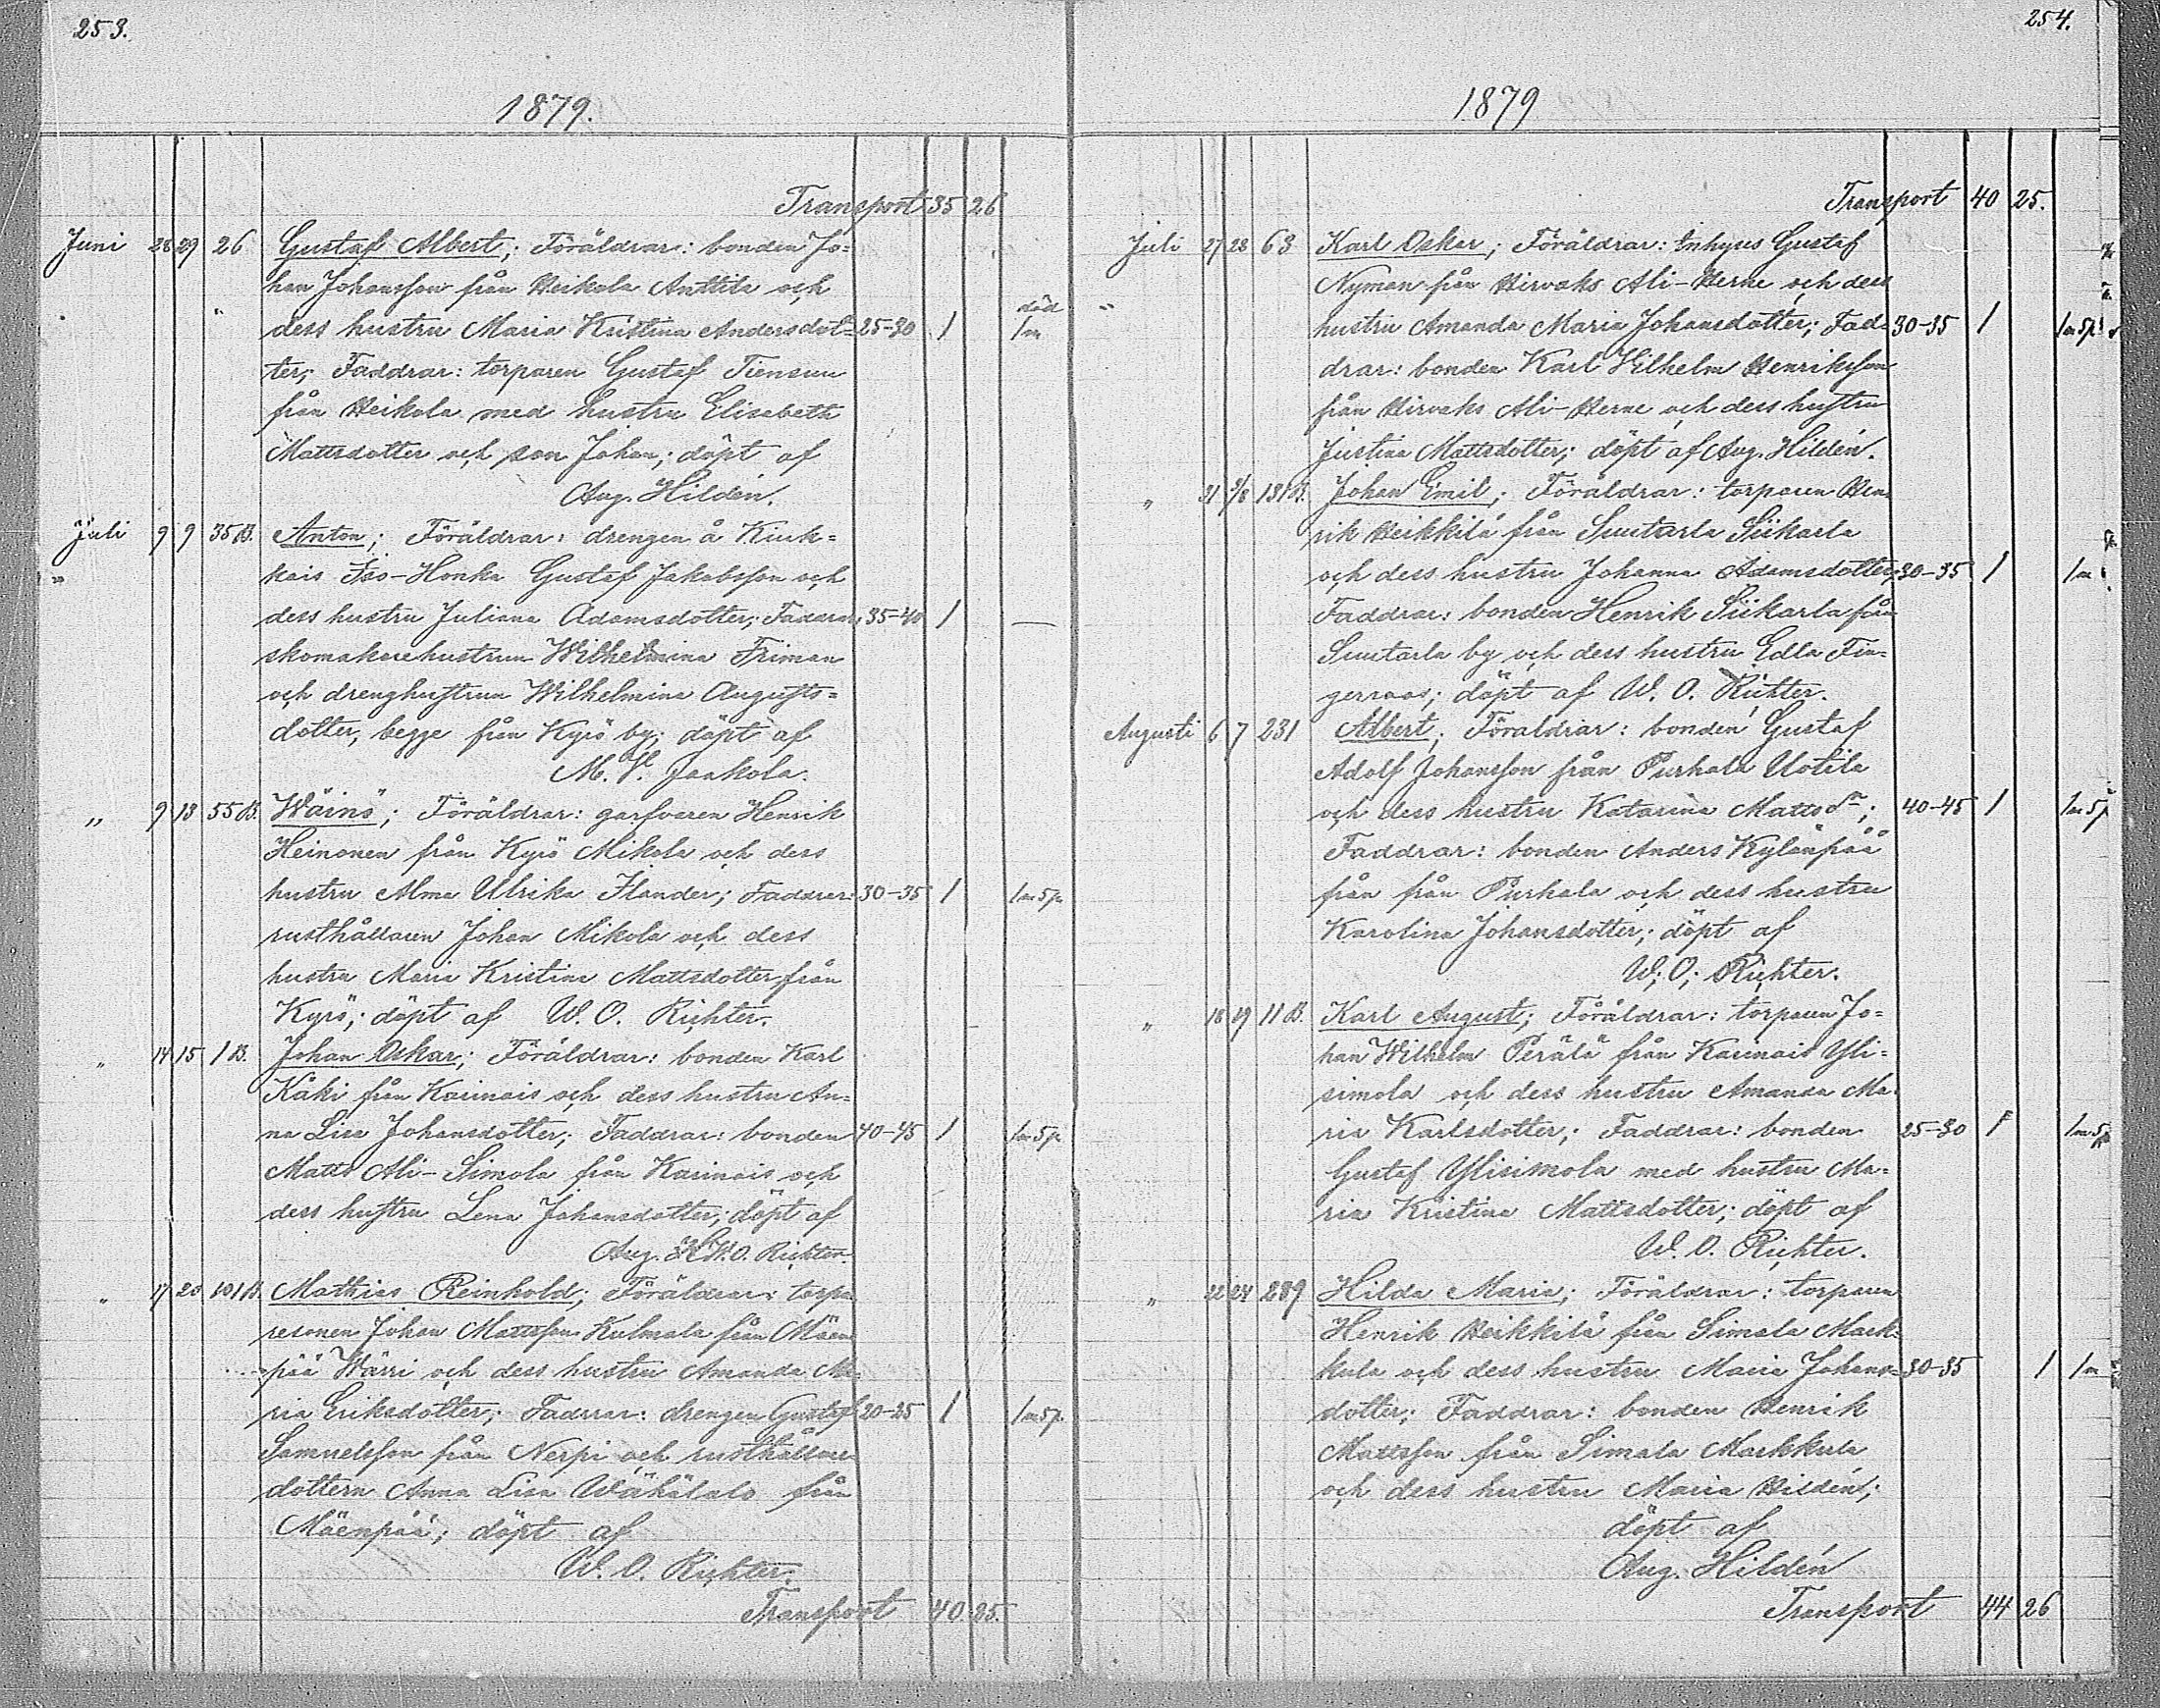 253.
1879.
Transport 35 26
Juni 28 29 26 Gustaf Albert; Föräldrar: bonden Jo=
han Johansson från Heikola Anttila och
död
dess hustru Maria Kristina Andersdot= 25-30 1 1 m
ter; Faddrar: torparen Gustaf Tiensuu
från Heikola med hustru Elisabeth
Mattsdotter och son Johan; döpt af
Aug. Hildén.
Juli 9 9 35 B. Anton; Föräldrar: drengen å Kiuk=
kais Iso-Honka Gustaf Jakobsson och
dess hustru Juliana Adamsdotter; Faddrar: 35-40 1 —
skomakarehustrun Wilhelmina Friman
och drenghustrun Wilhelmina Augusts=
dotter, begge från Kyrö by; döpt af
M. V. Jaakola.
" 9 13 55 B. Wäinö; Föräldrar: garfvaren Henrik
Heinonen från Kyrö Mikola och dess
hustru Alma Ulrika Ilander; Faddrar: 30-35 1 1 m 5 p
rusthållaren Johan Mikola och dess
hustru Maria Kristina Mattsdotter från
Kyrö; döpt af W. O. Richter.
" 14 15 1 B. Johan Oskar; Föräldrar: bonden Karl
Käki från Karinais och dess hustru An=
na Lisa Johansdotter; Faddrar: bonden 40-45 1 1 m 5 p
Matts Ali-Simola från Karinais och
dess hustru Lena Johansdotter; döpt af
Aug. W. O. Richter.
" 17 20 101 B. Mathias Reinhold; Föräldrar: torpa
resonen Johan Mattsson Kulmala från Mäen
pää Wärri och dess hustru Amanda Ma=
ria Eriksdotter; Faddrar: drengen Gustaf 20-25 1 1 m 5 p.
Samuelsson från Nerpi och rusthållare
dottern Anna Lisa Wähätalo från
Mäenpää; döpt af
W. O. Richter.
Transport 40 25.
254.
1879
Transport 40 25.
Juli 27 28 63 Karl Oskar; Föräldrar: Inhyses Gustaf
Nyman från Hirvoks Ali-Herne och dess
hustru Amanda Maria Johansdotter; Fad= 30-35 1 1 m 5 p
drar: bonden Karl Wilhelm Henriksson
från Hirvoks Ali-Herne och dess hustru
Justina Mattsdotter; döpt af Aug. Hildén.
" 31 3/8 131 B. Johan Emil; Föräldrar: torparen Hen=
rik Heikkilä från Suutarla Siikarla
och dess hustru Johanna Adamsdotter; 30-35 1 1 m
Faddrar: bonden Henrik Siikarla från
Suutarla by och dess hustru Edla Fin=
gerroos; döpt af W. O. Richter.
Augusti 6 7 231 Albert; Föräldrar: bonden Gustaf
Adolf Johansson från Purhala Uotila
och dess hustru Katarina Mattsdr; 40-45 1 1 m 5 p
Faddrar: bonden Anders Kylänpää
från från Purhala och dess hustru
Karolina Johansdotter; döpt af
W; O; Richter.
" 18 19 11 B. Karl August; Föräldrar: torparen Jo=
han Wilhelm Perälä från Karinais Yli=
simola och dess hustru Amanda Ma=
ria Karlsdotter; Faddrar: bonden 25-30 1 1 m 5 p
Gustaf Ylisimola med hustru Ma=
ria Kristina Mattsdotter; döpt af
W. O. Richter.
" 22 24 289 Hilda Maria; Föräldrar: torparen
Henrik Heikkilä från Simala Mark=
kula och dess hustru Maria Johans= 30-35 1 1 m
dotter; Faddrar: bonden Henrik
Mattsson från Simala Markkula
och dess hustru Maria Hildén;
döpt af
Aug. Hildén
Transport 44 26